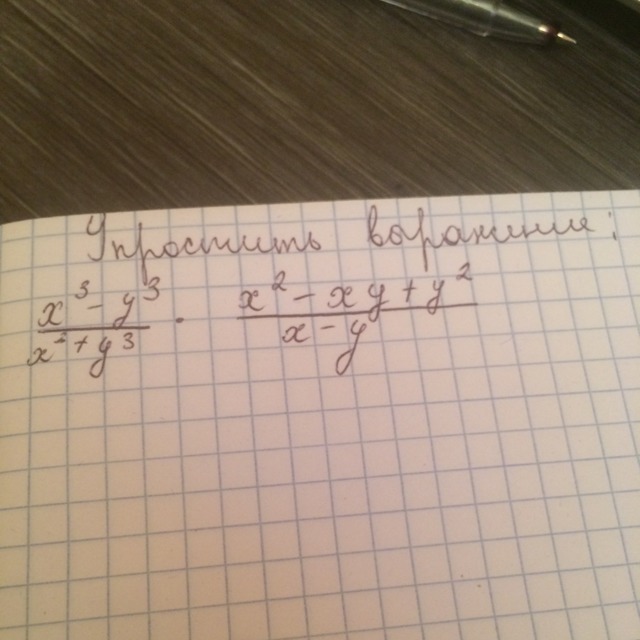 Упростить выражение:
x³-y³ / x²+y³ · x²-xy+y² / x-y